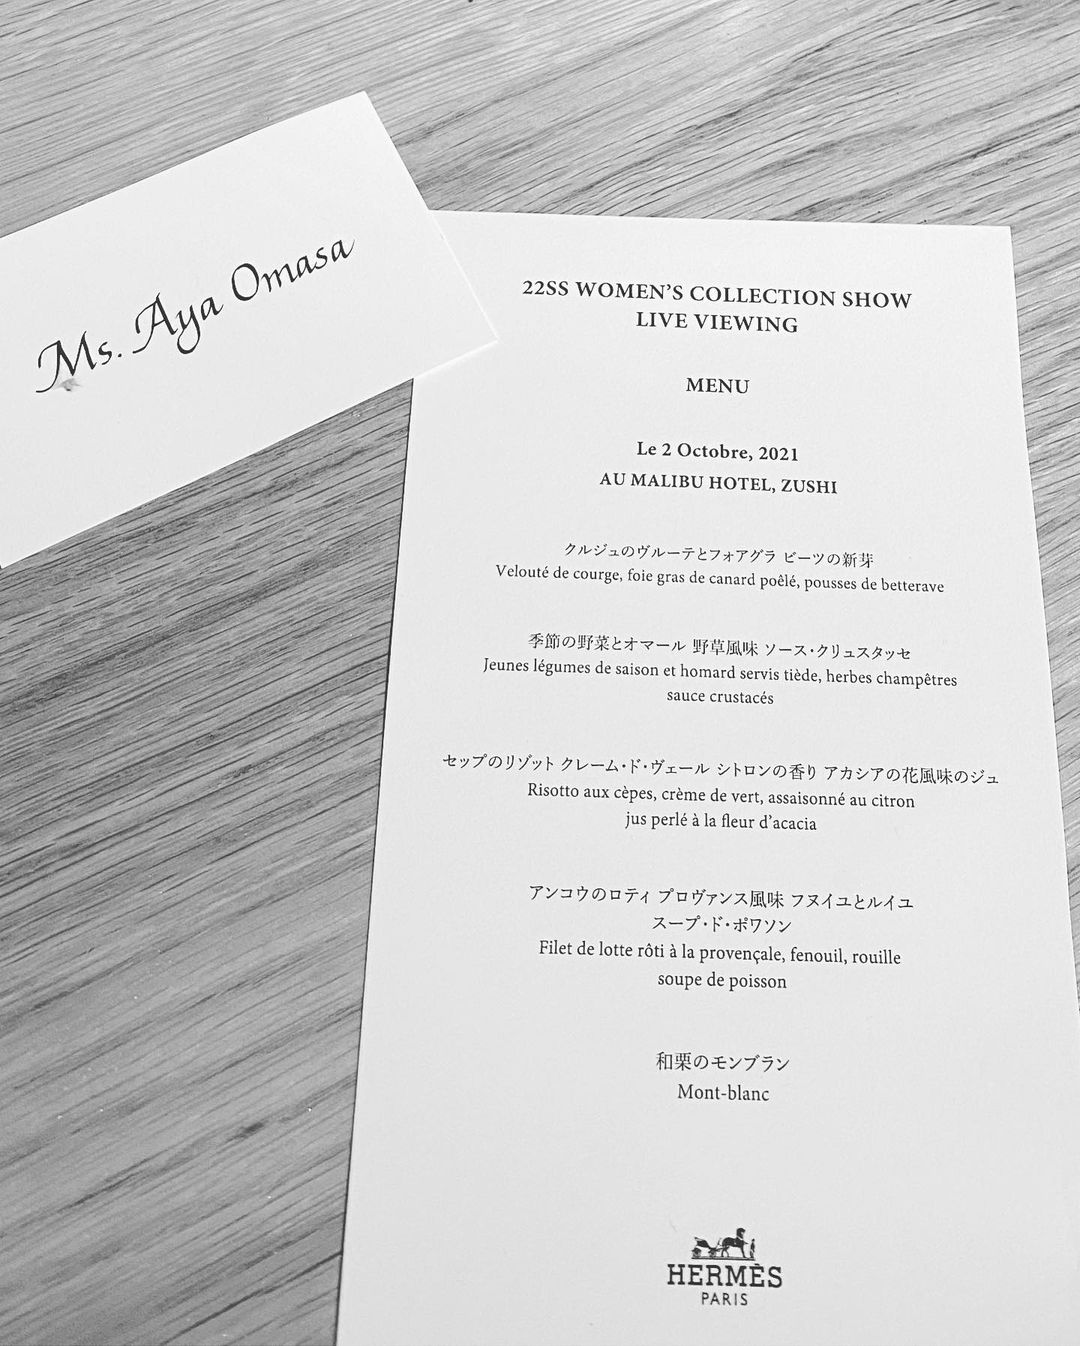 Ms. Aya Omasa
22SS WOMEN'S COLLECTION SHOW
LIVE VIEWING
MENU
Le 2 Octobre, 2021
AU MALIBU HOTEL, ZUSHI
クルジュのヴルーテとフォアグラ ビーツの新芽
Velouté de courge, foie gras de canard poêlé, pousses de betterave
季節の野菜とオマール 野草風味 ソース・クリュスタッセ
Jeunes légumes de saison et homard servis tiède, herbes champêtres
sauce crustacés
セップのリゾット クレーム・ド・ヴェール シトロンの香り アカシアの花風味のジュ
Risotto aux cèpes, crème de vert, assaisonné au citron
jus perlé à la fleur d'acacia
アンコウのロティ プロヴァンス風味 フヌイユとルイユ
スープ・ド・ポワソン
Filet de lotte rôti à la provençale, fenouil, rouille
soupe de poisson
和栗のモンブラン
Mont-blanc
HERMÈS
PARIS